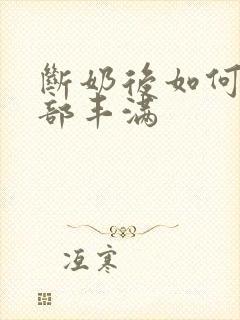 斷奶後如何
部丰满
冱寒